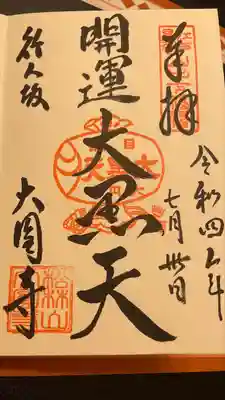 奉拝
令和四年
七月卅日
開運
大黒天
行人坂
大圓寺